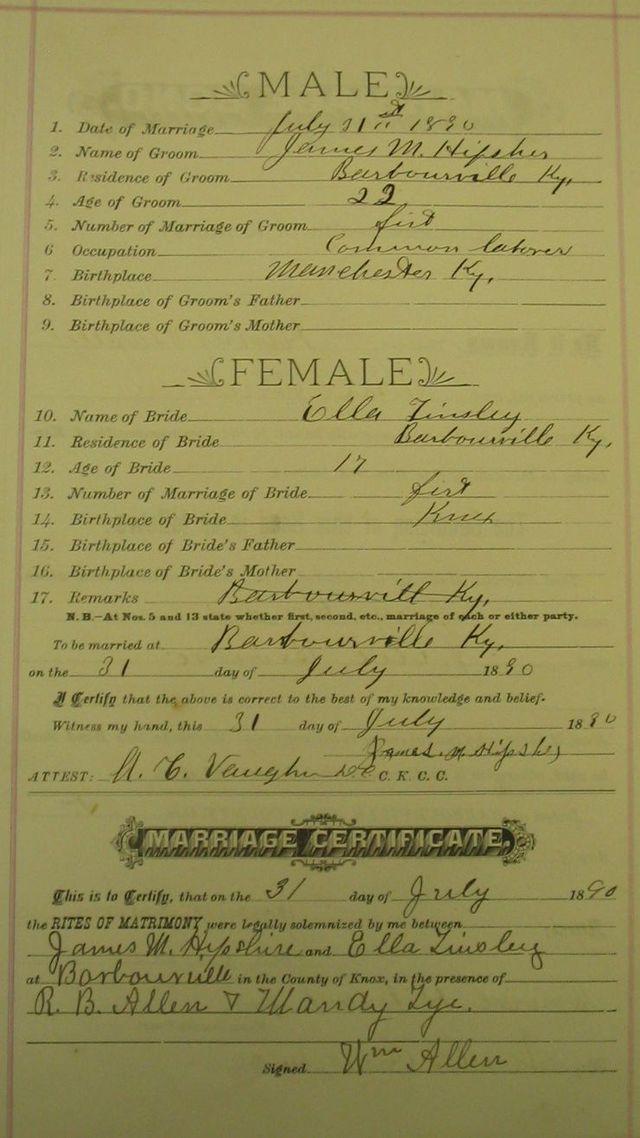 MALE
1. Date of Marriage July 31st 1890
2. Name of Groom James M. Hipsher
3. Residence of Groom Barbourville Ky,
4. Age of Groom 22
5. Number of Marriage of Groom first
6 Occupation Common laborer
7. Birthplace Manchester Ky.
8. Birthplace of Groom's Father
9. Birthplace of Groom's Mother
FEMALE
10. Name of Bride Ella Tinsley
11. Residence of Bride Barbourville Ky,
12. Age of Bride 17
13. Number of Marriage of Bride first
14. Birthplace of Bride Knox
15. Birthplace of Bride's Father
16. Birthplace of Bride's Mother
17. Remarks Barbourvill Ky,
N. B.—At Nos. 5 and 13 state whether first, second, etc., marriage of each or either party.
To be married at Barbourville Ky,
on the 31 day of July 1890
I Certify that the above is correct to the best of my knowledge and belief.
Witness my hand, this 31 day of July 1890
James M. Hipsher
ATTEST: A. C. Vaughn DC C. K. C. C.
MARRIAGE CERTIFICATE.
This is to Certify, that on the 31 day of July 1890
the RITES OF MATRIMONY were legally solemnized by me between
James M. Hipshire and Ella Tinsley
at Barbourville in the County of Knox, in the presence of
R. B. Allen & Mandy Tye.
Signed Wm Allen